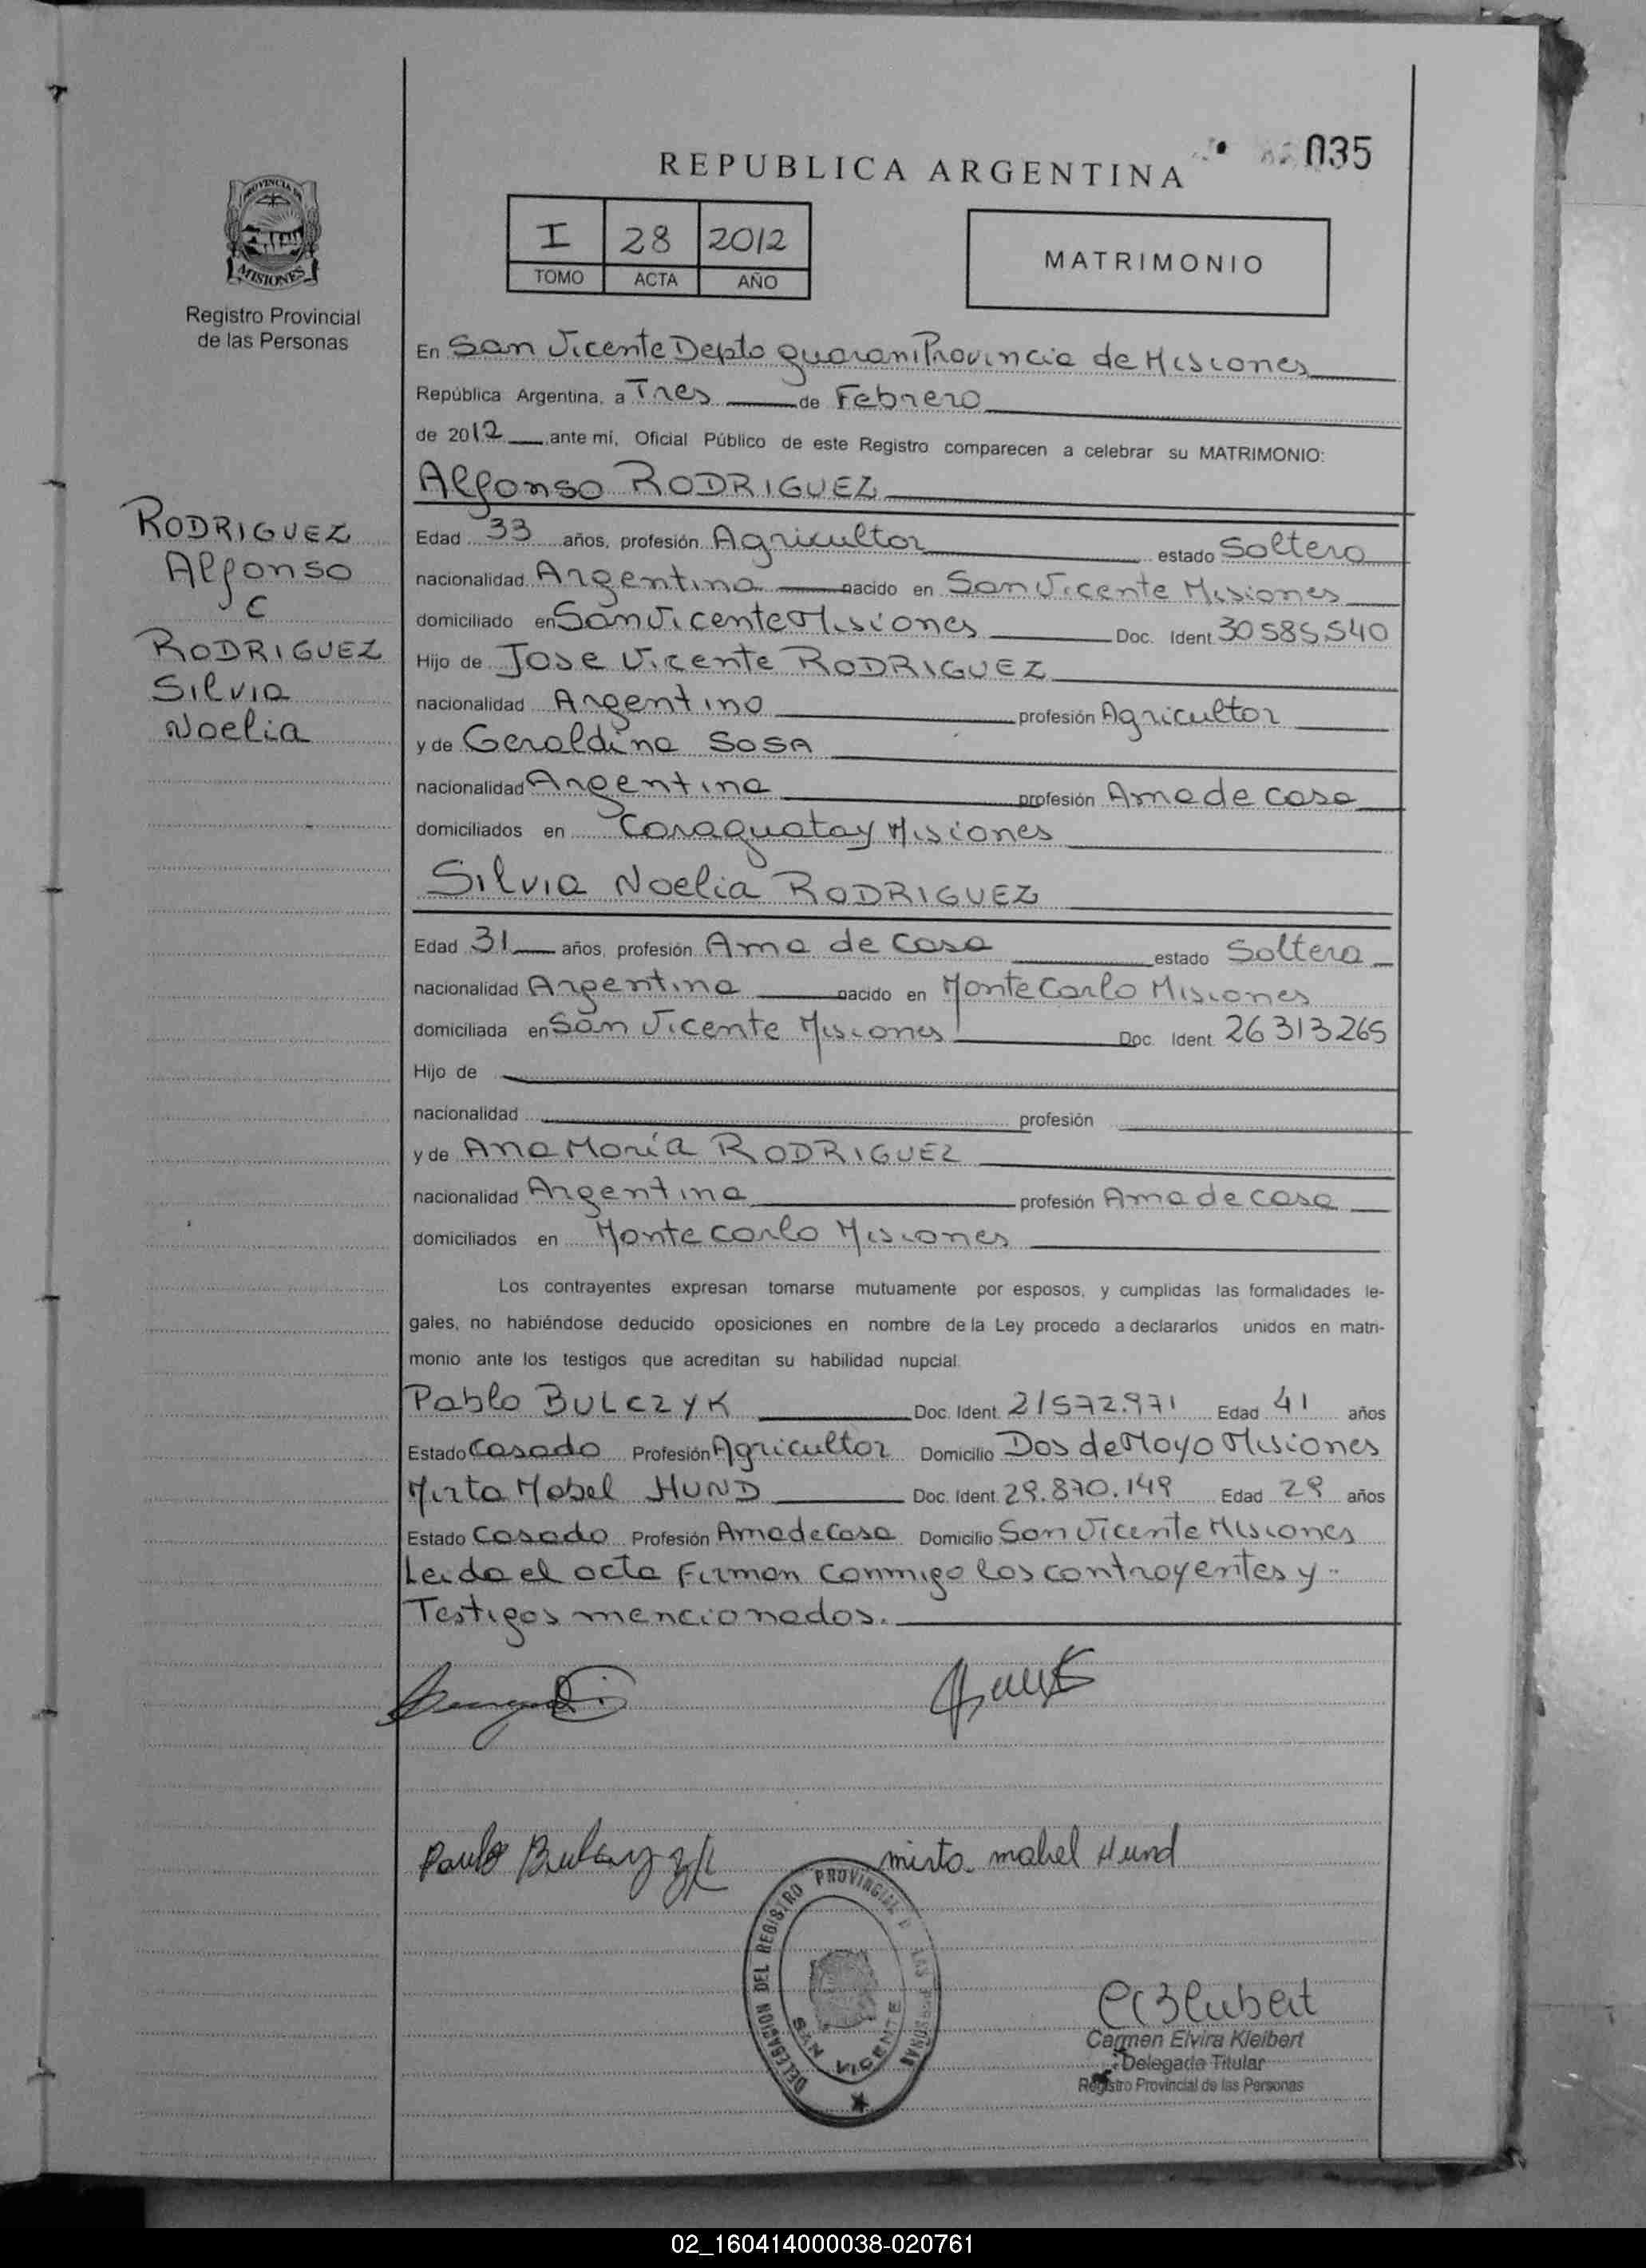 035
REPUBLICA ARGENTINA
I 28 2012
TOMO ACTA AÑO
MATRIMONIO
PROVINCIA DE
MISIONES
Registro Provincial
de las Personas
RODRIGUEZ
Alfonso
C
RODRIGUEZ
Silvia
Noelia
En San Vicente Depto guarani Provincia de Misiones
República Argentina, a Tres de Febrero
de 2012 ante mí, Oficial Público de este Registro comparecen a celebrar su MATRIMONIO:
Alfonso RODRIGUEZ
Edad 33 años, profesión Agricultor estado Soltero
nacionalidad Argentina nacido en San Vicente Misiones
domiciliado en San Vicente Misiones Doc. Ident. 30585540
Hijo de Jose Vicente RODRIGUEZ
nacionalidad Argentino profesión Agricultor
y de Geraldina SOSA
nacionalidad Argentina profesión Ama de casa
domiciliados en Caraguatay Misiones
Silvia Noelia RODRIGUEZ
Edad 31 años, profesión Ama de casa estado Soltera
nacionalidad Argentina nacido en Monte Carlo Misiones
domiciliada en San Vicente Misiones Doc. Ident. 26313265
Hijo de
nacionalidad profesión
y de Ana María RODRIGUEZ
nacionalidad Argentina profesión Ama de casa
domiciliados en Monte carlo Misiones
Los contrayentes expresan tomarse mutuamente por esposos, y cumplidas las formalidades le-
gales, no habiéndose deducido oposiciones en nombre de la Ley procedo a declararlos unidos en matri-
monio ante los testigos que acreditan su habilidad nupcial.
Pablo BULCZYK Doc. Ident. 21572.971 Edad 41 años
Estado Casado Profesión Agricultor Domicilio Dos de Mayo Misiones
Mirta Mabel HUND Doc. Ident. 29.870.149 Edad 29 años
Estado Casado Profesión Ama de Casa Domicilio San Vicente Misiones
Leida el acta Firman conmigo los contrayentes y
Testigos mencionados.
mirta mabel Hund
DELEGACION DEL REGISTRO PROVINCIAL D LAS PERSONAS
SAN VICENTE
Carmen Elvira Kleibert
Delegada Titular
Registro Provincial de las Personas
02_160414000038-020761